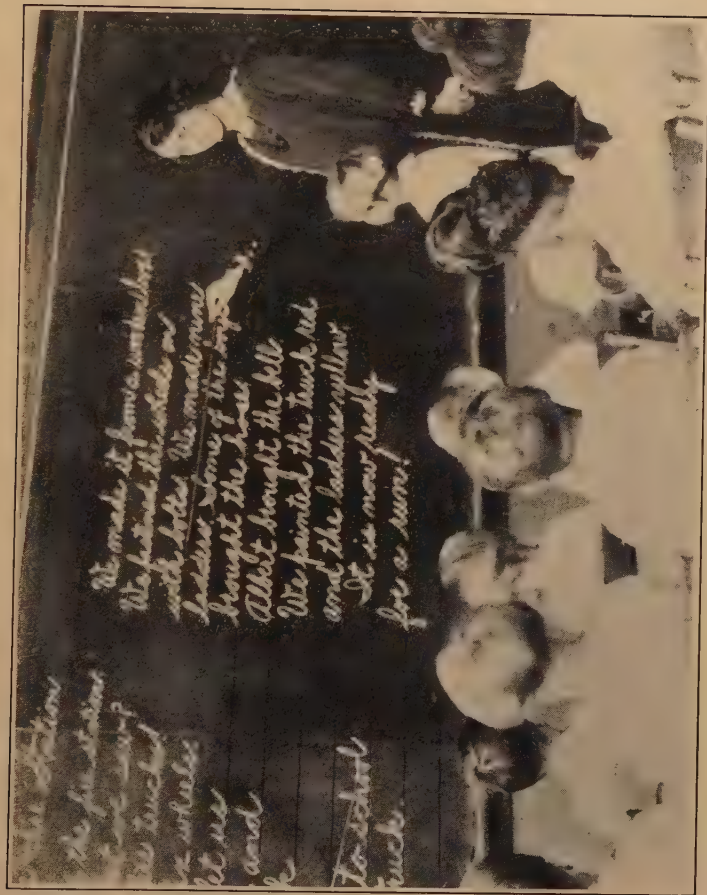 Station
the
wheels
let us
and
to school
truck.
We made it from a wooden box
We fastened the wheels on
with bolts. We made
ladders. Some of the boys
brought the hose.
Albert brought the bell.
We painted the truck red
and the ladders yellow.
It is now ready
for a run.